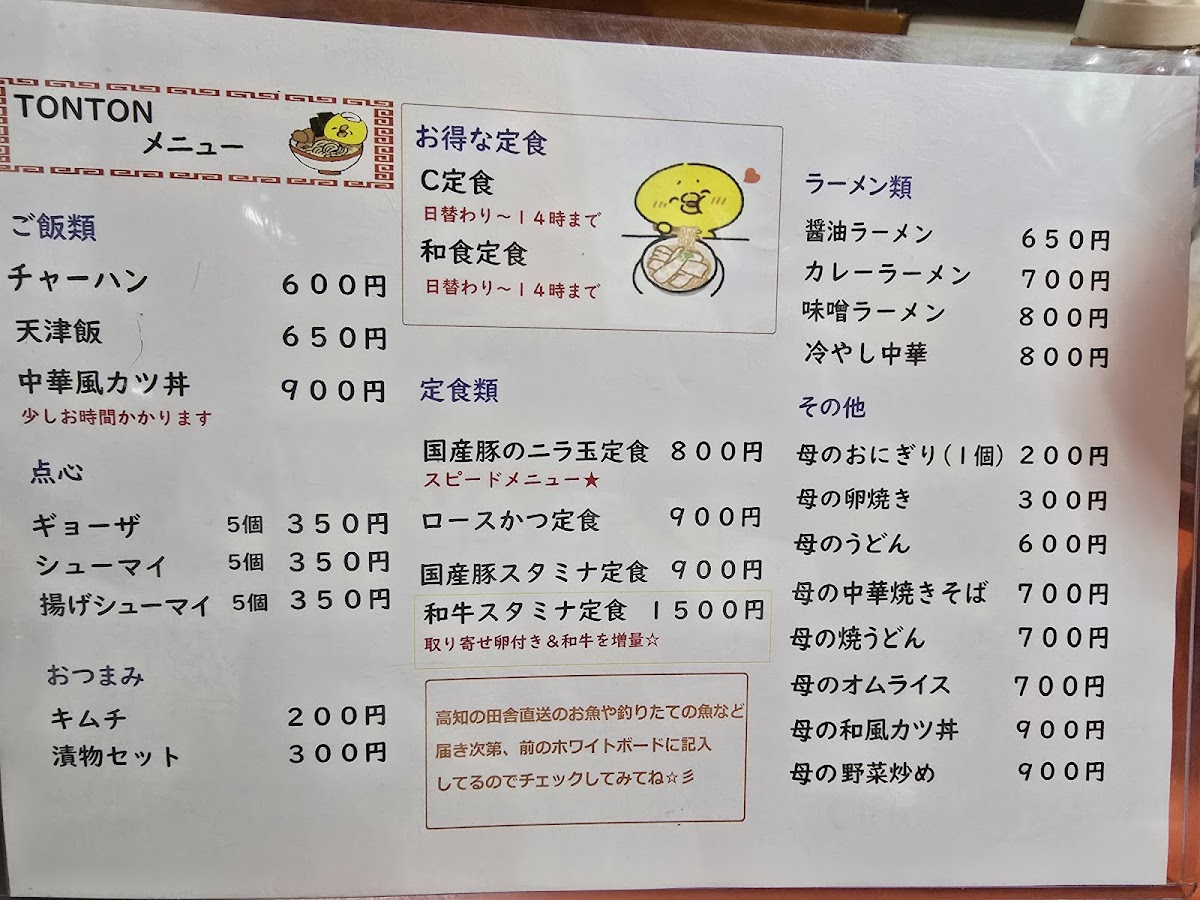 TONTON
メニュー
ご飯類
チャーハン 600円
天津飯 650円
中華風カツ丼 900円
少しお時間かかります
点心
ギョーザ 5個 350円
シューマイ 5個 350円
揚げシューマイ 5個 350円
おつまみ
キムチ 200円
漬物セット 300円
お得な定食
C定食
日替わり～14時まで
和食定食
日替わり～14時まで
定食類
国産豚のニラ玉定食 800円
スピードメニュー★
ロースかつ定食 900円
国産豚スタミナ定食 900円
和牛スタミナ定食 1500円
取り寄せ卵付き＆和牛を増量☆
高知の田舎直送のお魚や釣りたての魚など
届き次第、前のホワイトボードに記入
してるのでチェックしてみてね☆彡
ラーメン類
醤油ラーメン 650円
カレーラーメン 700円
味噌ラーメン 800円
冷やし中華 800円
その他
母のおにぎり(1個) 200円
母の卵焼き 300円
母のうどん 600円
母の中華焼きそば 700円
母の焼うどん 700円
母のオムライス 700円
母の和風カツ丼 900円
母の野菜炒め 900円